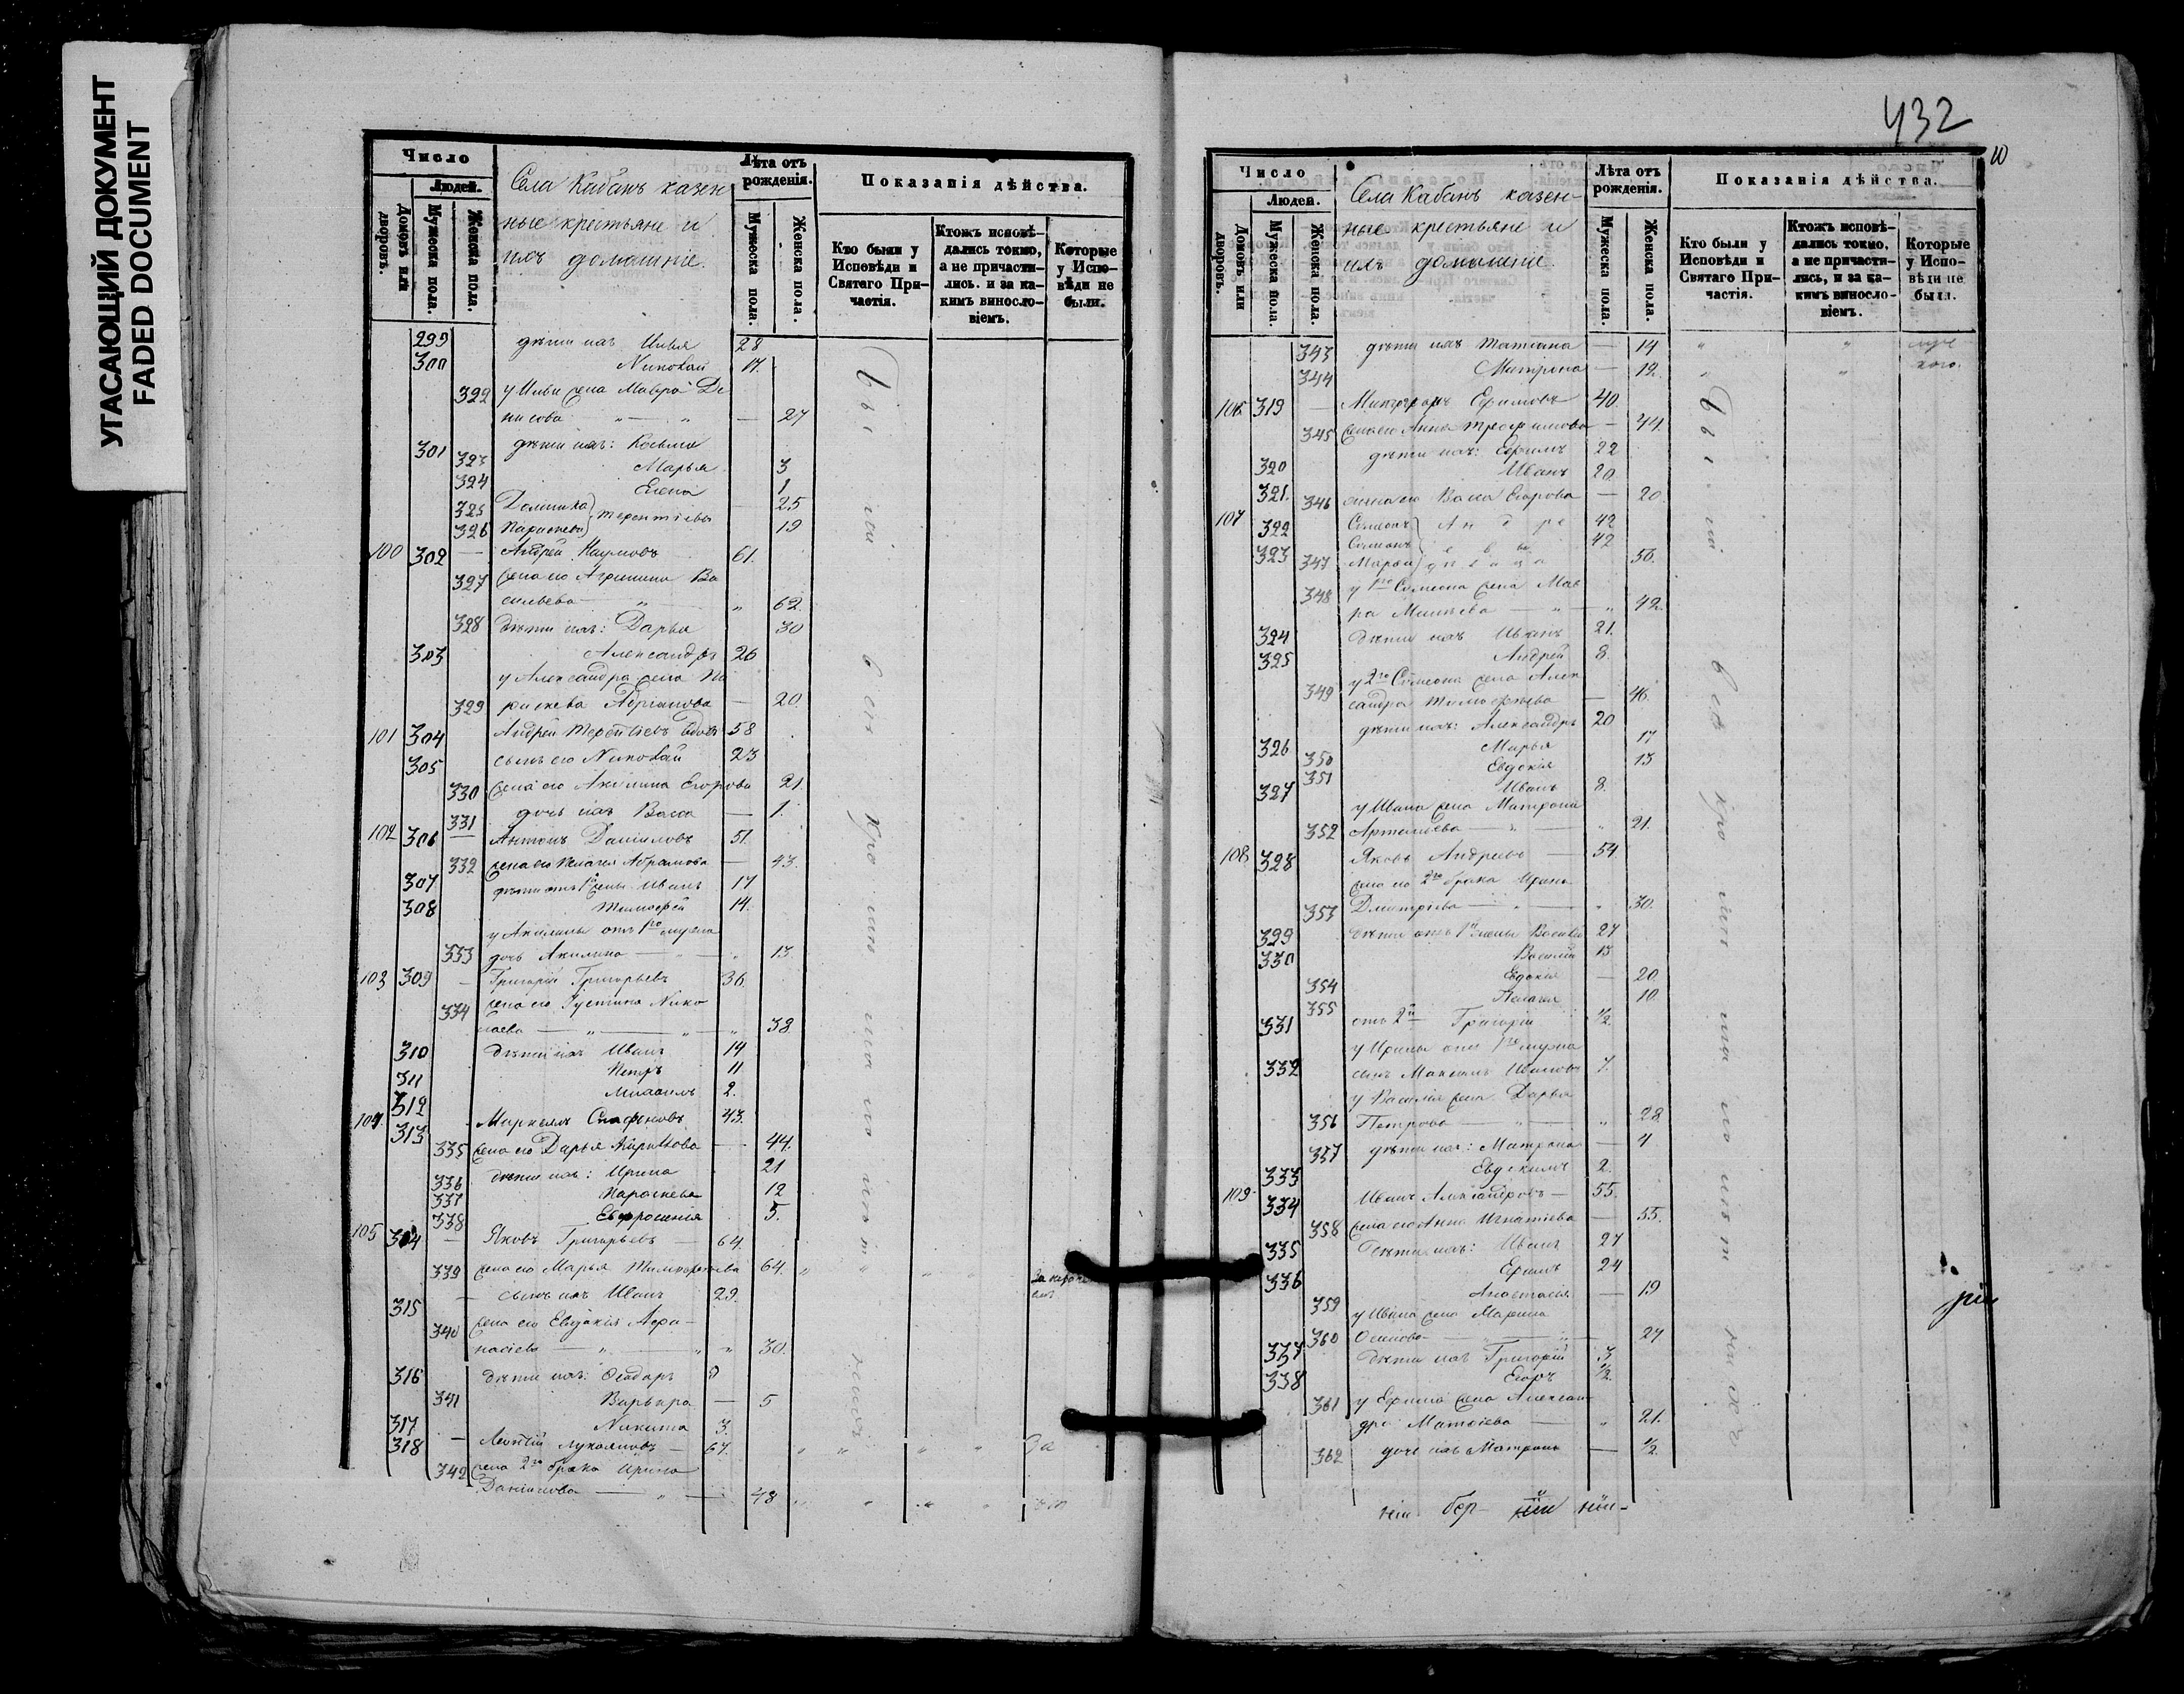 УГАСАЮЩИЙ ДОКУМЕНТ
FADED DOCUMENT
Число
Людей.
Домовъ или дворовъ.
Мужеска пола.
Женска пола.
Села Кабанъ казен
ные крестьяне и
ихъ домашніе.
Лѣта отъ рожденія.
Мужеска пола.
Женска пола.
Показанія дѣйства.
Кто были у Исповѣди и Святаго Причастія.
Ктожъ исповѣдались токмо, а не причастились. и за какимъ винословіемъ.
Которые у Исповѣди не были.
299 дѣти ихъ Илья 28
300 Николай 17.
322 у Ильи жена Мавра Де
нисова — 27
301 дѣти ихъ: Косьма
323 Марья 3
324 Елена 1
325 Домника — 25
326 Параскева Терентіевы 19
100 302 — Андрей Наумовъ 61.
327 жена его Агрипина Ва
сильева — 62.
328 дѣти ихъ: Дарья 30
303 Александръ 26
у Александра жена Па
329 раскева Абрамова — 20.
101 304 Андрей Терентіевъ вдовъ 58
305 сынъ его Николай 23
330 жена его Акилина Егорова 21.
331 дочь ихъ Васса — 1.
102 306 — Антонъ Даниловъ 51.
332 жена его Пелагея Абрамова — 43.
307 дѣти отъ 1й жены Иванъ 17
308 Тимофей 14.
у Акилины отъ 1го мужа
333 дочь Акилина — 13.
103 309 — Григорій Григорьевъ 36.
334 жена его Густина Нико
лаева — 38
310 дѣти ихъ Иванъ 14
311 Петръ 11
312 Михаилъ 2.
104. 313 Маркеллъ 43.
335 жена его Дарья — 44.
336 дѣти ихъ: Ирина 21
337 Параскева 12
338 Евфросинія 5.
105 314 — Яковъ Григорьевъ — 64.
339 жена его Марья 64.
315 — сынъ ихъ Иванъ 29.
340 жена его Евдокія Афа-
насіева — 30.
316 дѣти ихъ: Ѳеодоръ 8
341 Варвара — 5
317 Никита 3.
318 — Леонтій Лукояновъ — 67.
342 жена 2го брака Ирина
Данилова — 48
Были всѣ
432
10
Число
Людей.
Домовъ или дворовъ.
Мужеска пола.
Женска пола.
Села Кабанъ казен-
ные крестьяне и
ихъ домашніе.
Лѣта отъ рожденія.
Мужеска пола.
Женска пола.
Показанія дѣйства.
Кто были у Исповѣди и Святаго Причастія.
Ктожъ исповѣдались токмо, а не причастились, и за какимъ винословіемъ.
Которые у Исповѣди не были.
343 дѣти ихъ Татіана — 14
344 Матрона — 12.
106 319 — Ефимовъ 40.
345 жена его Анна Трофимова — 44.
320 дѣти ихъ: Ефимъ 22
321. Иванъ 20
346 жена его Васса Егорова — 20.
107 322 Симеонъ 42
323 Симеонъ 42
347 Марья 50.
348 у 1го Симеона жена Мав
ра — 42.
324 дѣти ихъ Иванъ 21.
325 Андрей 8.
349 у 2го Симеона жена Алек
сандра Тимофеева — 46.
326 дѣти ихъ: Александръ 20
350 Марья 17
351 Евдокія 13
327 Иванъ 8.
у Ивана жена Матрона
352 Артемьева — 21.
108 328 Яковъ Андреевъ — 54.
жена его 2го брака Ирина
353 Дмитріева — 30.
329 дѣти отъ 1й жены Василій 27
330 Василій 13
354 Евдокія — 20.
355 Пелагея 10.
331 отъ 2й — Григорій ½.
у Ирины отъ 1го мужа
332 сынъ Максимъ Ивановъ 7.
у Василія жена Дарья
356 Петрова — 28.
357 дѣти ихъ: Матрона — 4
333 Евдокимъ 2.
109 334 Иванъ Александровъ — 55.
358 жена его Анна Игнатіева — 55.
335 дѣти ихъ: Иванъ 27
336 Ефимъ 24
359 Анастасія — 19
у Ивана жена Марина
360 Осипова — 27
337 дѣти ихъ Григорій 3
338 Егоръ ½.
361 у Ефима жена Алексан-
дра Матвіева — 21.
362 дочь ихъ Матрона — ½.
Были всѣ